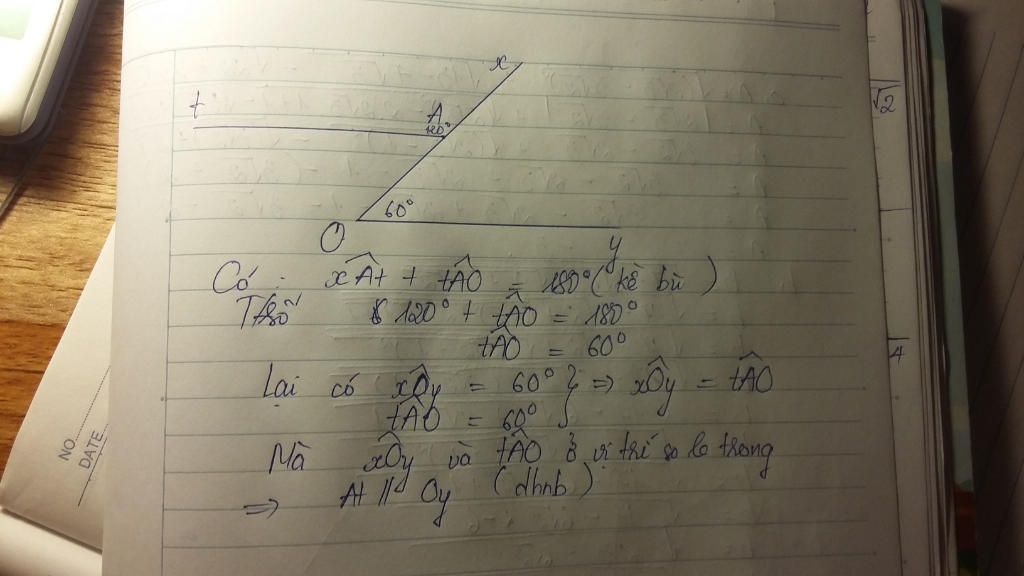 x
t
A
120°
60°
O
y
Có : xÂt + tÂO = 180° (kề bù)
Thsố 120° + tÂO = 180°
tÂO = 60°
Lại có xÔy = 60° } => xÔy = tÂO
tÂO = 60°
Mà xÔy và tÂO ở vị trí so le trong
=> At // Oy (dhnb)
√2
4
NO
DATE